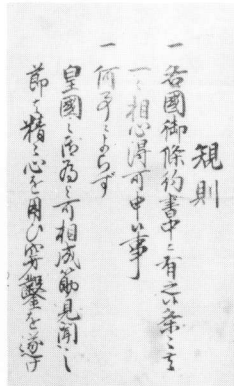 規則
一 各國御條約書中ニ有之候条々者
一々相心得可申候事
一 何事ニよらず
皇國之御為ニ可相成筋見聞いし
節者精々心を用ひ穿鑿を遂け